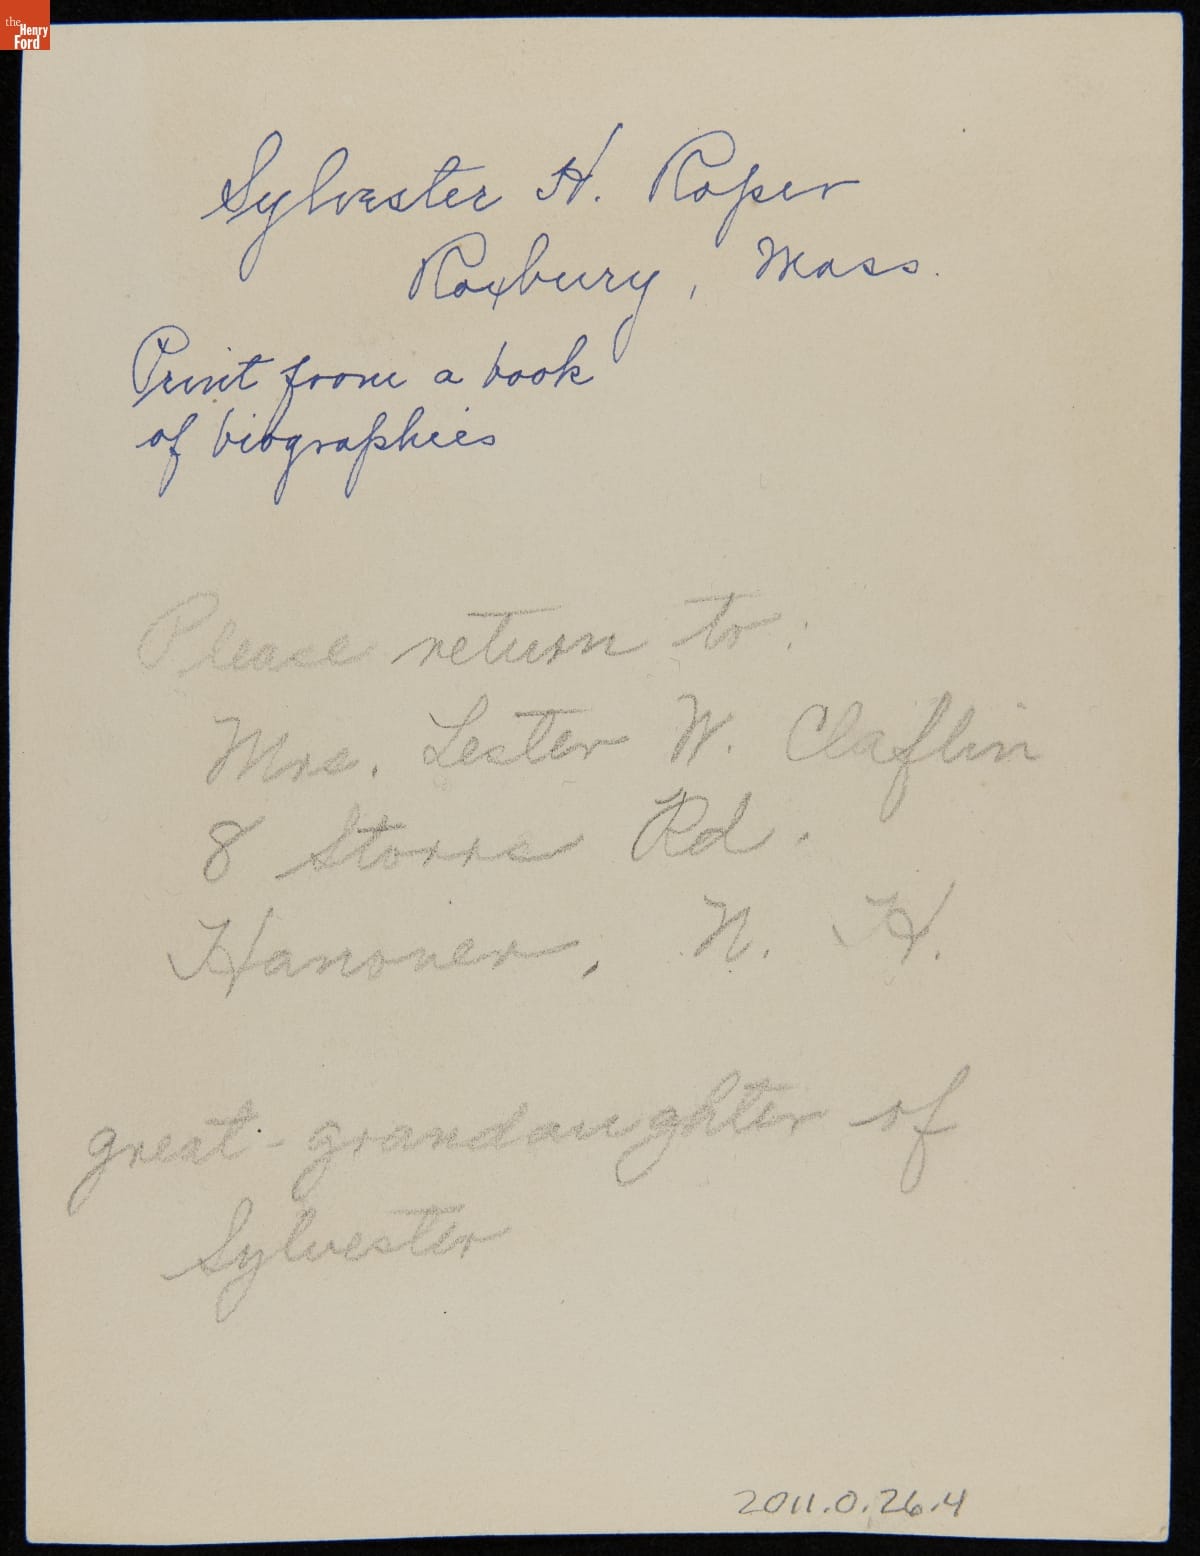 the
Henry
Ford
Sylvester H. Roper
Roxbury, Mass.
Print from a book
of biographies
Please return to:
Mrs. Lester W. Claflin
8 Storrs Rd.
Hanover, N. H.
great-grandaughter of
Sylvester
2011.0.26.4